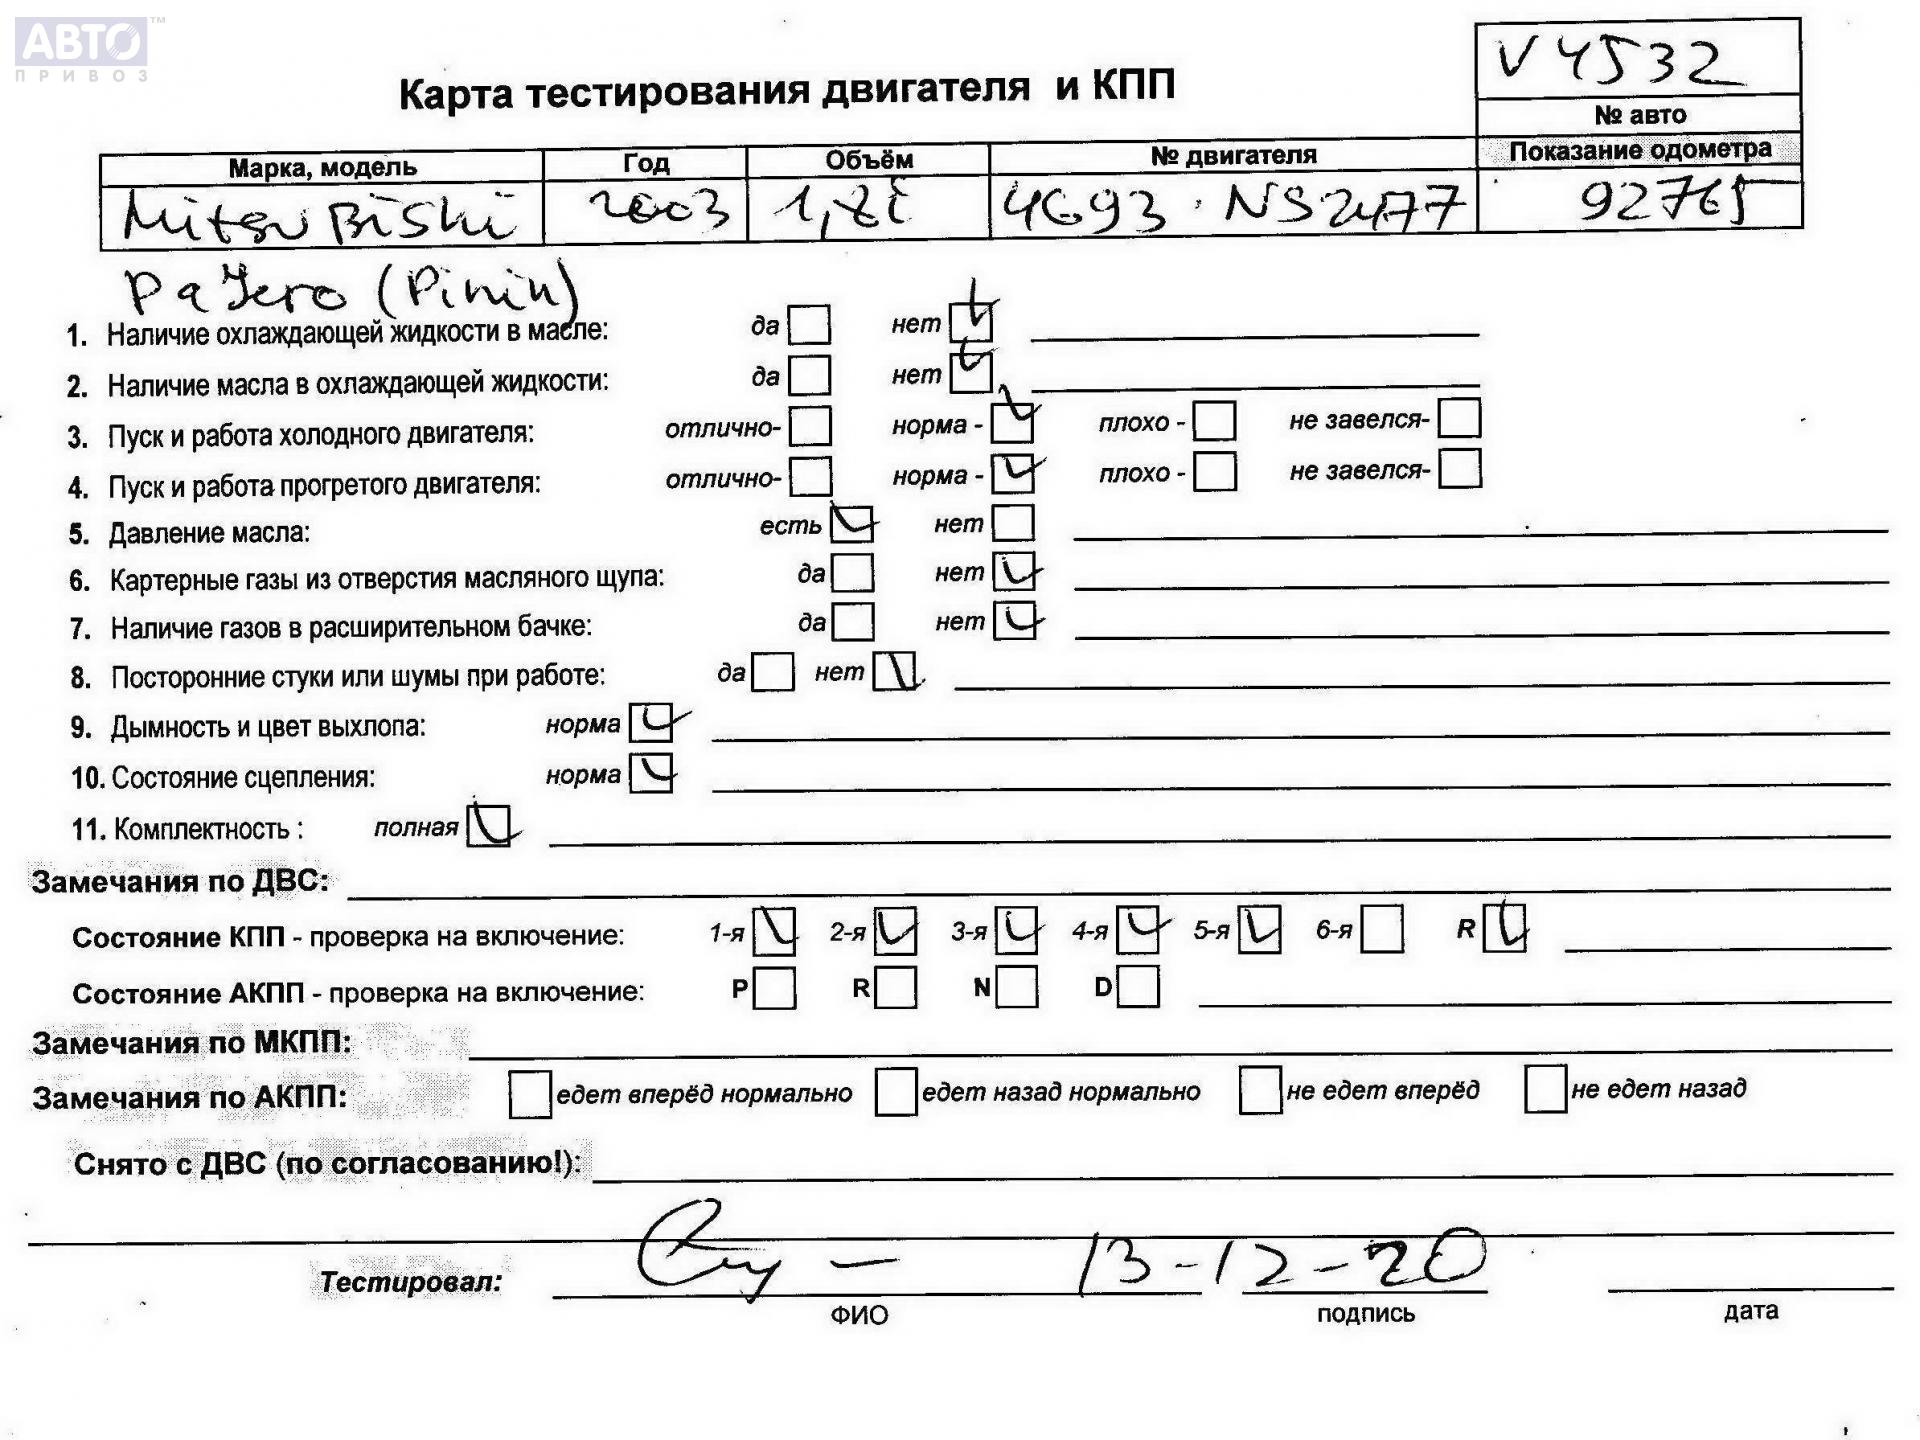 АВТО ™
ПРИВОЗ
V4532
Карта тестирования двигателя и КПП
№ авто
Марка, модель Год Объём № двигателя Показание одометра
Mitsubishi 2003 1,8i 4G93 · NS2477 92765
Pajero (Pinin)
1. Наличие охлаждающей жидкости в масле: да нет
2. Наличие масла в охлаждающей жидкости: да нет
3. Пуск и работа холодного двигателя: отлично- норма - плохо - не завелся-
4. Пуск и работа прогретого двигателя: отлично- норма - плохо - не завелся-
5. Давление масла: есть нет
6. Картерные газы из отверстия масляного щупа: да нет
7. Наличие газов в расширительном бачке: да нет
8. Посторонние стуки или шумы при работе: да нет
9. Дымность и цвет выхлопа: норма
10. Состояние сцепления: норма
11. Комплектность : полная
Замечания по ДВС:
Состояние КПП - проверка на включение: 1-я 2-я 3-я 4-я 5-я 6-я R
Состояние АКПП - проверка на включение: P R N D
Замечания по МКПП:
Замечания по АКПП: едет вперёд нормально едет назад нормально не едет вперёд не едет назад
Снято с ДВС (по согласованию!):
Тестировал: 13-12-20
ФИО подпись дата